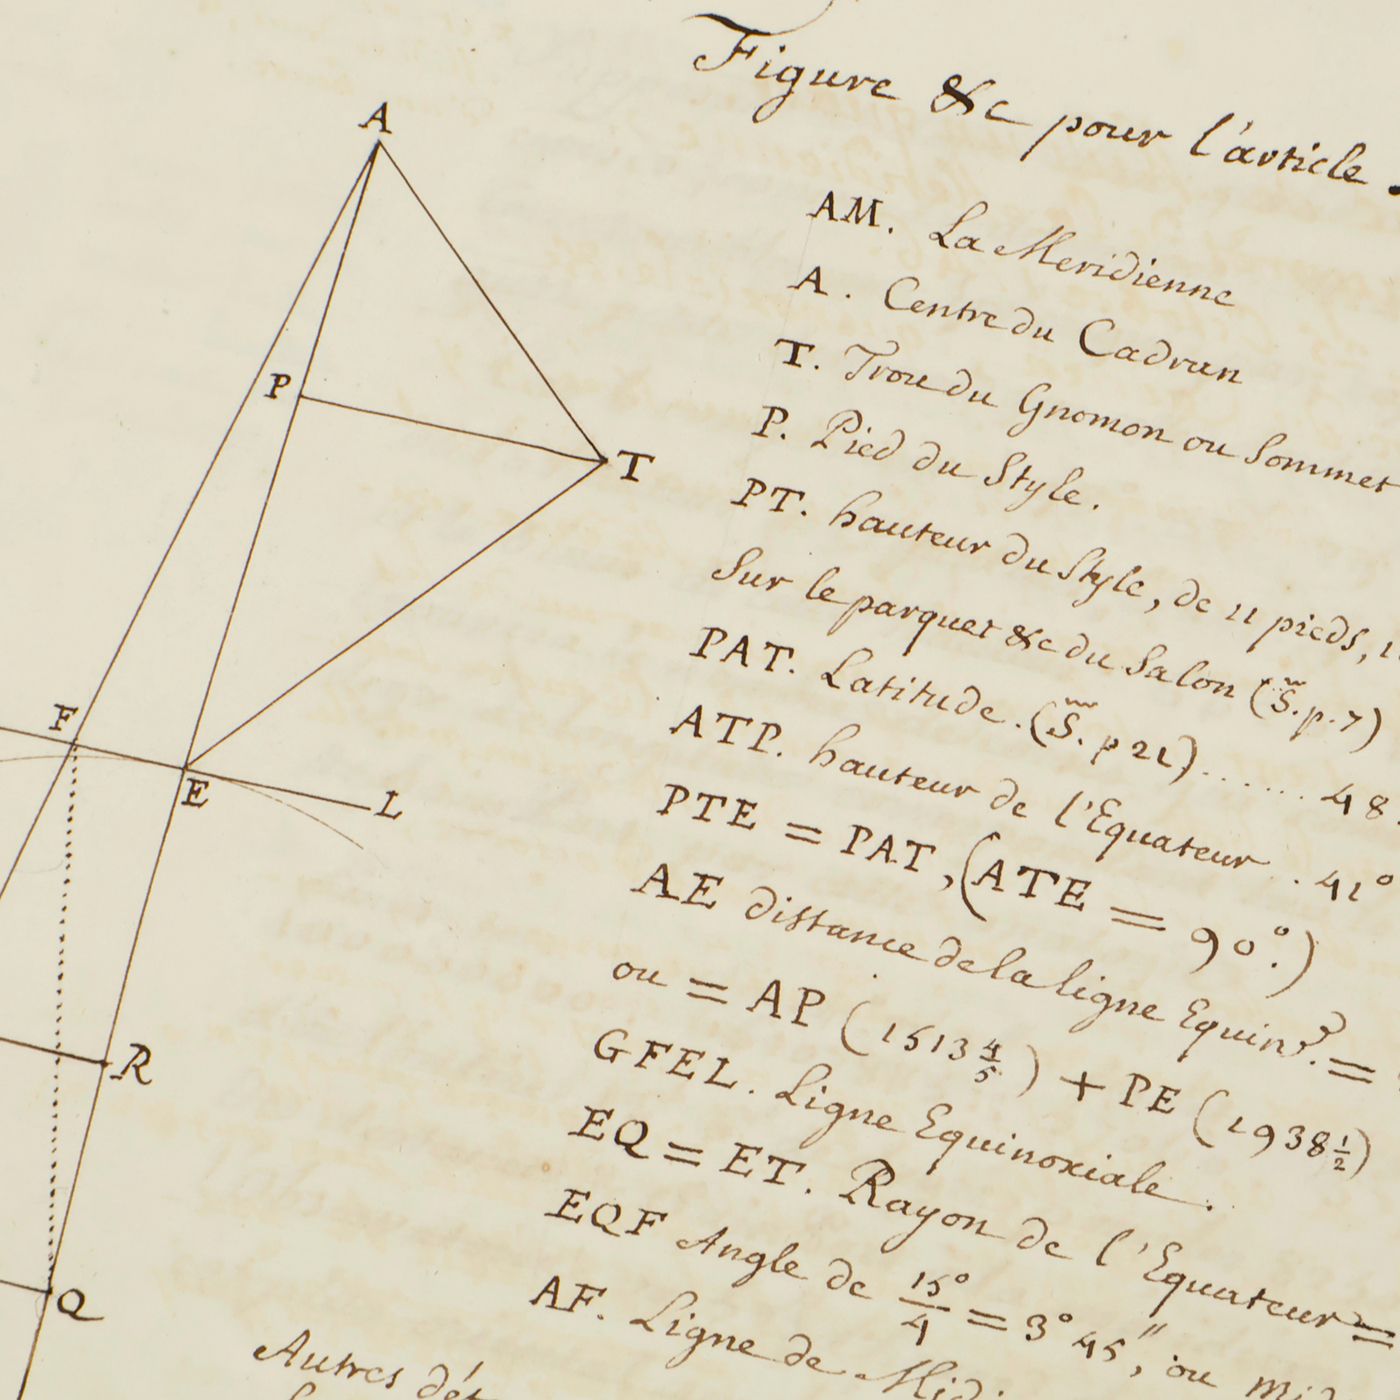 Figure &c pour l'article.
AM. La Meridienne
A. Centre du Cadran
T. Trou du Gnomon ou Sommet
P. Pied du Style.
PT. hauteur du Style, de 11 pieds,
Sur le parquet &c du Salon (S. p. 7)
PAT. Latitude. (S. p 21) ...... 48.
ATP. hauteur de l'Equateur .. 41°
PTE = PAT, (ATE = 90°.)
AE distance de la ligne Equin? =
ou = AP (1513 4/5) + PE (1938 1/2)
GFEL. Ligne Equinoxiale.
EQ = ET. Rayon de l'Equateur =
EQF Angle de 15°/4 = 3° 45", ou
AF. Ligne de
Autres
A
P
T
F
E
L
R
Q